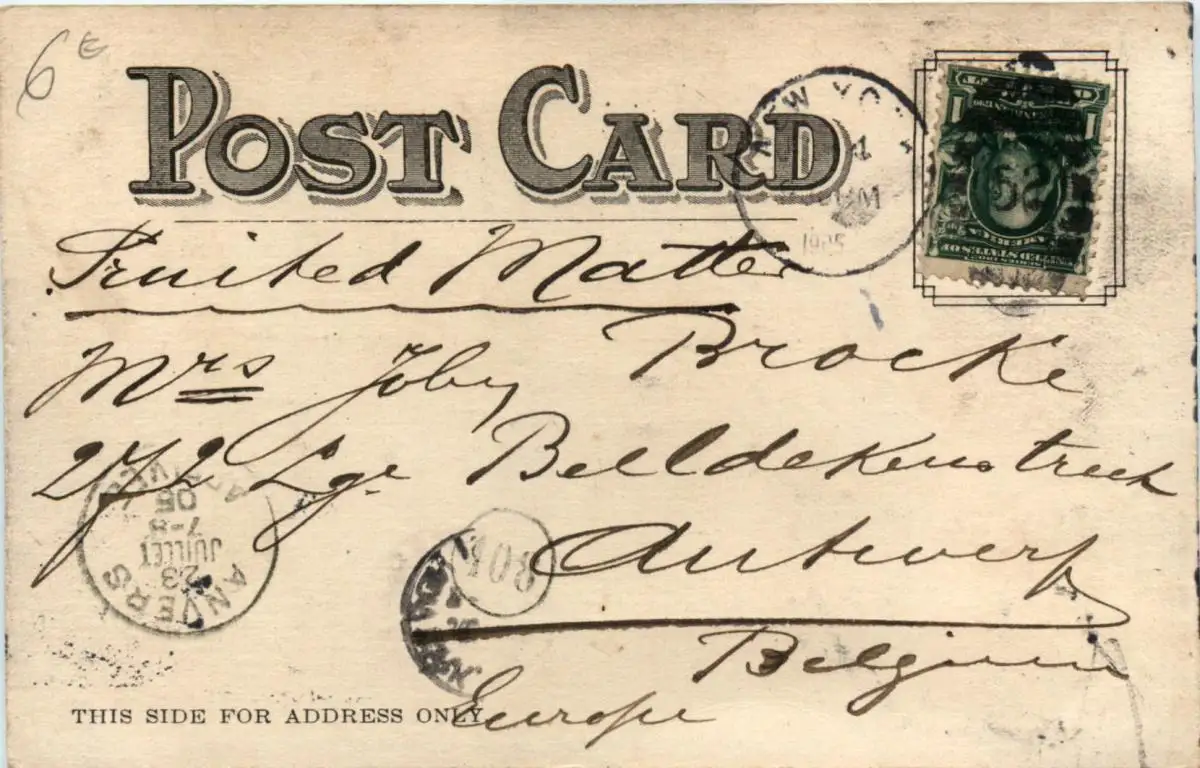 6 E
POST CARD
NEW YORK
1905
Printed Matter
Mrs Joby Brocke
272 Lge Beeldekenstreet
Antwerp
Belgium
Europe
ANVERS
23
JUILLET
7-8
05
ANTWERPEN
308
52
THIS SIDE FOR ADDRESS ONLY